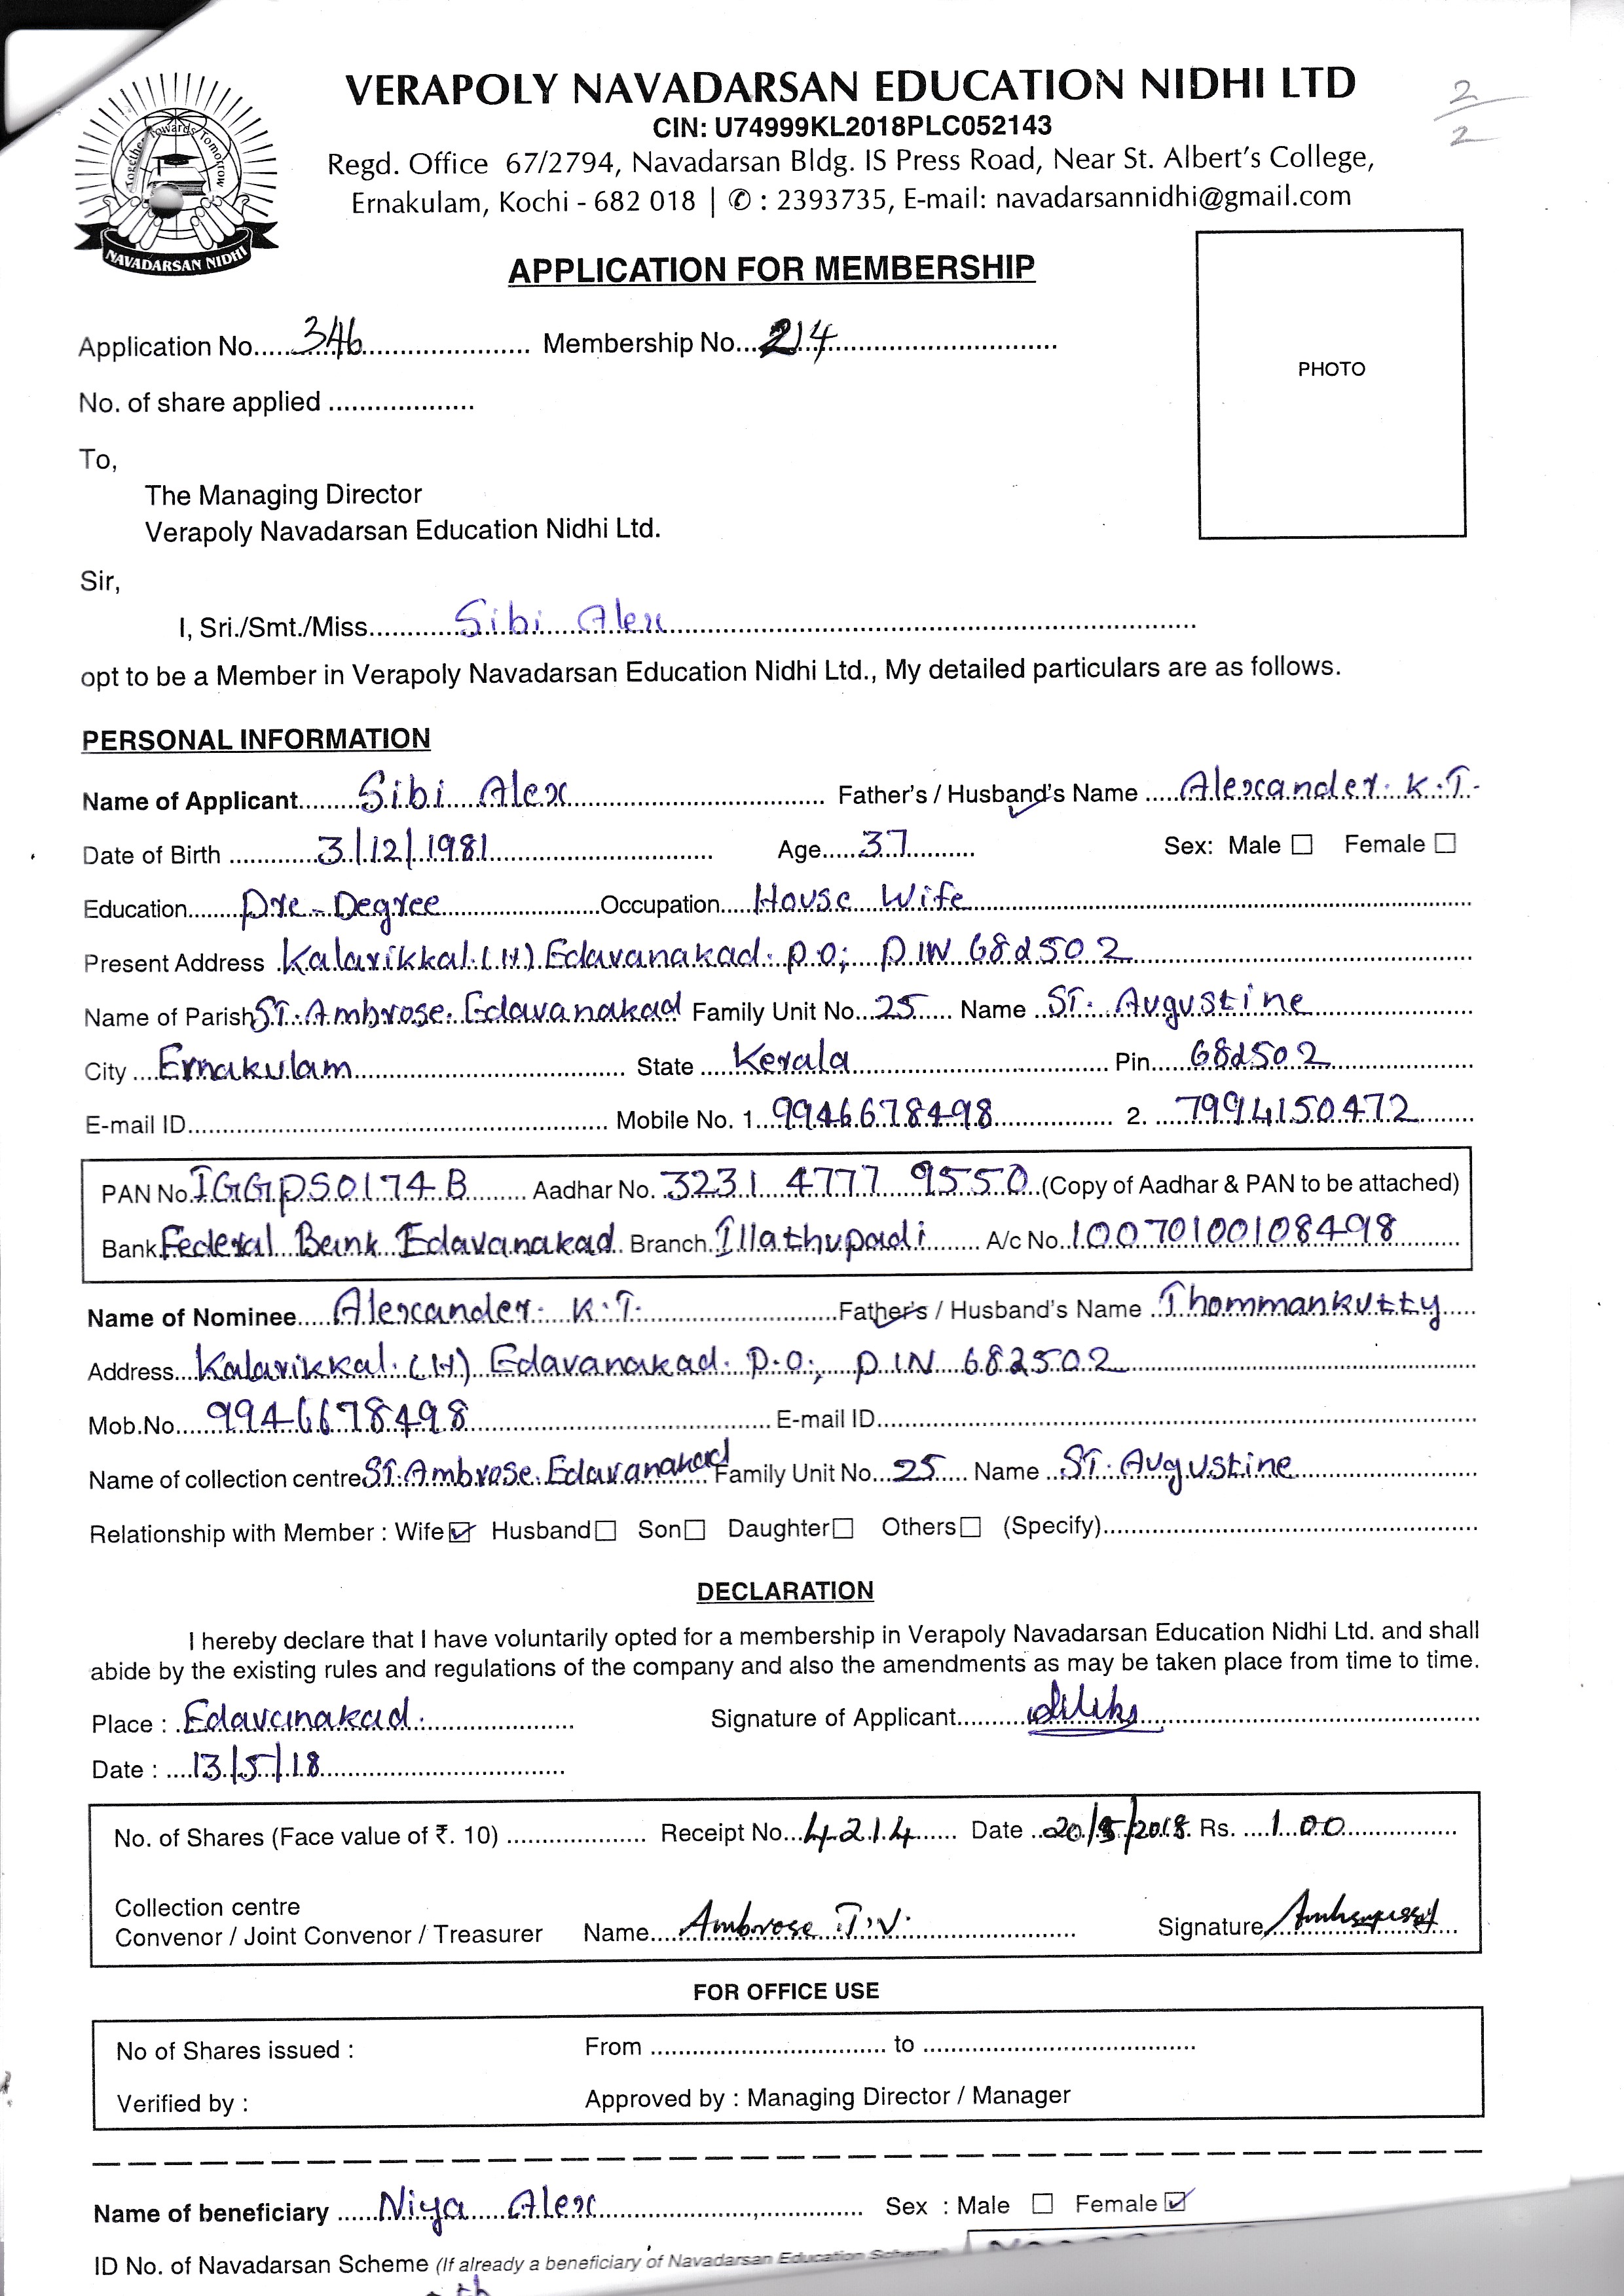 VERAPOLY NAVADARSAN EDUCATION NIDHI LTD
CIN: U74999KL2018PLC052143
Regd. Office 67/2794, Navadarsan Bldg. IS Press Road, Near St. Albert's College,
Ernakulam, Kochi - 682 018 | ✆ : 2393735, E-mail: navadarsannidhi@gmail.com
2/2
Together Towards Tomorrow
NAVADARSAN NIDHI
APPLICATION FOR MEMBERSHIP
Application No. 346 Membership No. 214
PHOTO
No. of share applied
To,
The Managing Director
Verapoly Navadarsan Education Nidhi Ltd.
Sir,
I, Sri./Smt./Miss. Sibi Alex
opt to be a Member in Verapoly Navadarsan Education Nidhi Ltd., My detailed particulars are as follows.
PERSONAL INFORMATION
Name of Applicant Sibi Alex Father's / Husband's Name Alexander. K.T.
Date of Birth 3/12/1981 Age 37 Sex: Male ☐ Female ☐
Education Pre-Degree Occupation House Wife
Present Address Kalarikkal (H) Edavanakad. P.O; PIN 682502
Name of Parish ST. Ambrose. Edavanakad Family Unit No. 25 Name ST. Augustine
City Ernakulam State Kerala Pin 682502
E-mail ID Mobile No. 1. 9946678498 2. 7994150472
PAN No. IGGPS0174B Aadhar No. 3231 4777 9550 (Copy of Aadhar & PAN to be attached)
Bank Federal Bank Edavanakad Branch Illathupadi A/c No. 10070100108498
Name of Nominee Alexander. K.T. Father's / Husband's Name Thommankutty
Address Kalarikkal (H) Edavanakad. P.O; PIN 682502
Mob.No. 9946678498 E-mail ID
Name of collection centre ST. Ambrose. Edavanakad Family Unit No. 25 Name ST. Augustine
Relationship with Member : Wife ☑ Husband ☐ Son ☐ Daughter ☐ Others ☐ (Specify)
DECLARATION
I hereby declare that I have voluntarily opted for a membership in Verapoly Navadarsan Education Nidhi Ltd. and shall
abide by the existing rules and regulations of the company and also the amendments as may be taken place from time to time.
Place : Edavanakad. Signature of Applicant
Date : 13/5/18
No. of Shares (Face value of ₹. 10) Receipt No. 4214 Date 20/5/2018. Rs. 100
Collection centre
Convenor / Joint Convenor / Treasurer Name Ambrose T.V. Signature
FOR OFFICE USE
No of Shares issued : From to
Verified by : Approved by : Managing Director / Manager
Name of beneficiary Niya Alex Sex : Male ☐ Female ☑
ID No. of Navadarsan Scheme (If already a beneficiary of Navadarsan Education Scheme